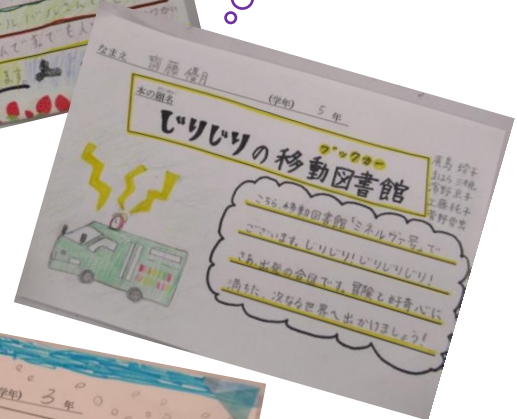 なまえ 齊藤 優月
(学年) 5 年
本の題名
じりじりの移動図書館
ブックカー
廣嶋 玲子
まはら 三桃
菅野 雪虫
こちら移動図書館「ミネルヴァ号」で
ございます。じりじり!じりじりじり!
さあ、出発の合図です。冒険と好奇心に
満ちた、次なる世界へ出かけましょう!
学年) 3 年
ます